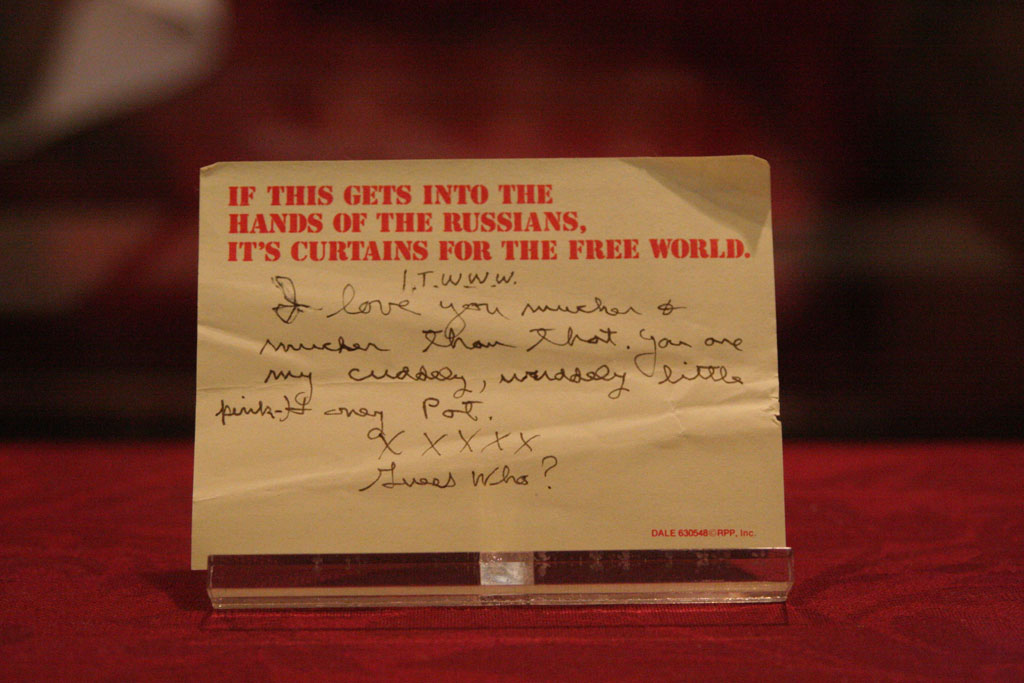 IF THIS GETS INTO THE
HANDS OF THE RUSSIANS,
IT'S CURTAINS FOR THE FREE WORLD.
I.T.W.W.W.
I love you mucher &
mucher than that. You are
my cuddely, wuddely little
pink-H oney Pot.
X X X X X
Guess Who?
DALE 630548©RPP, Inc.